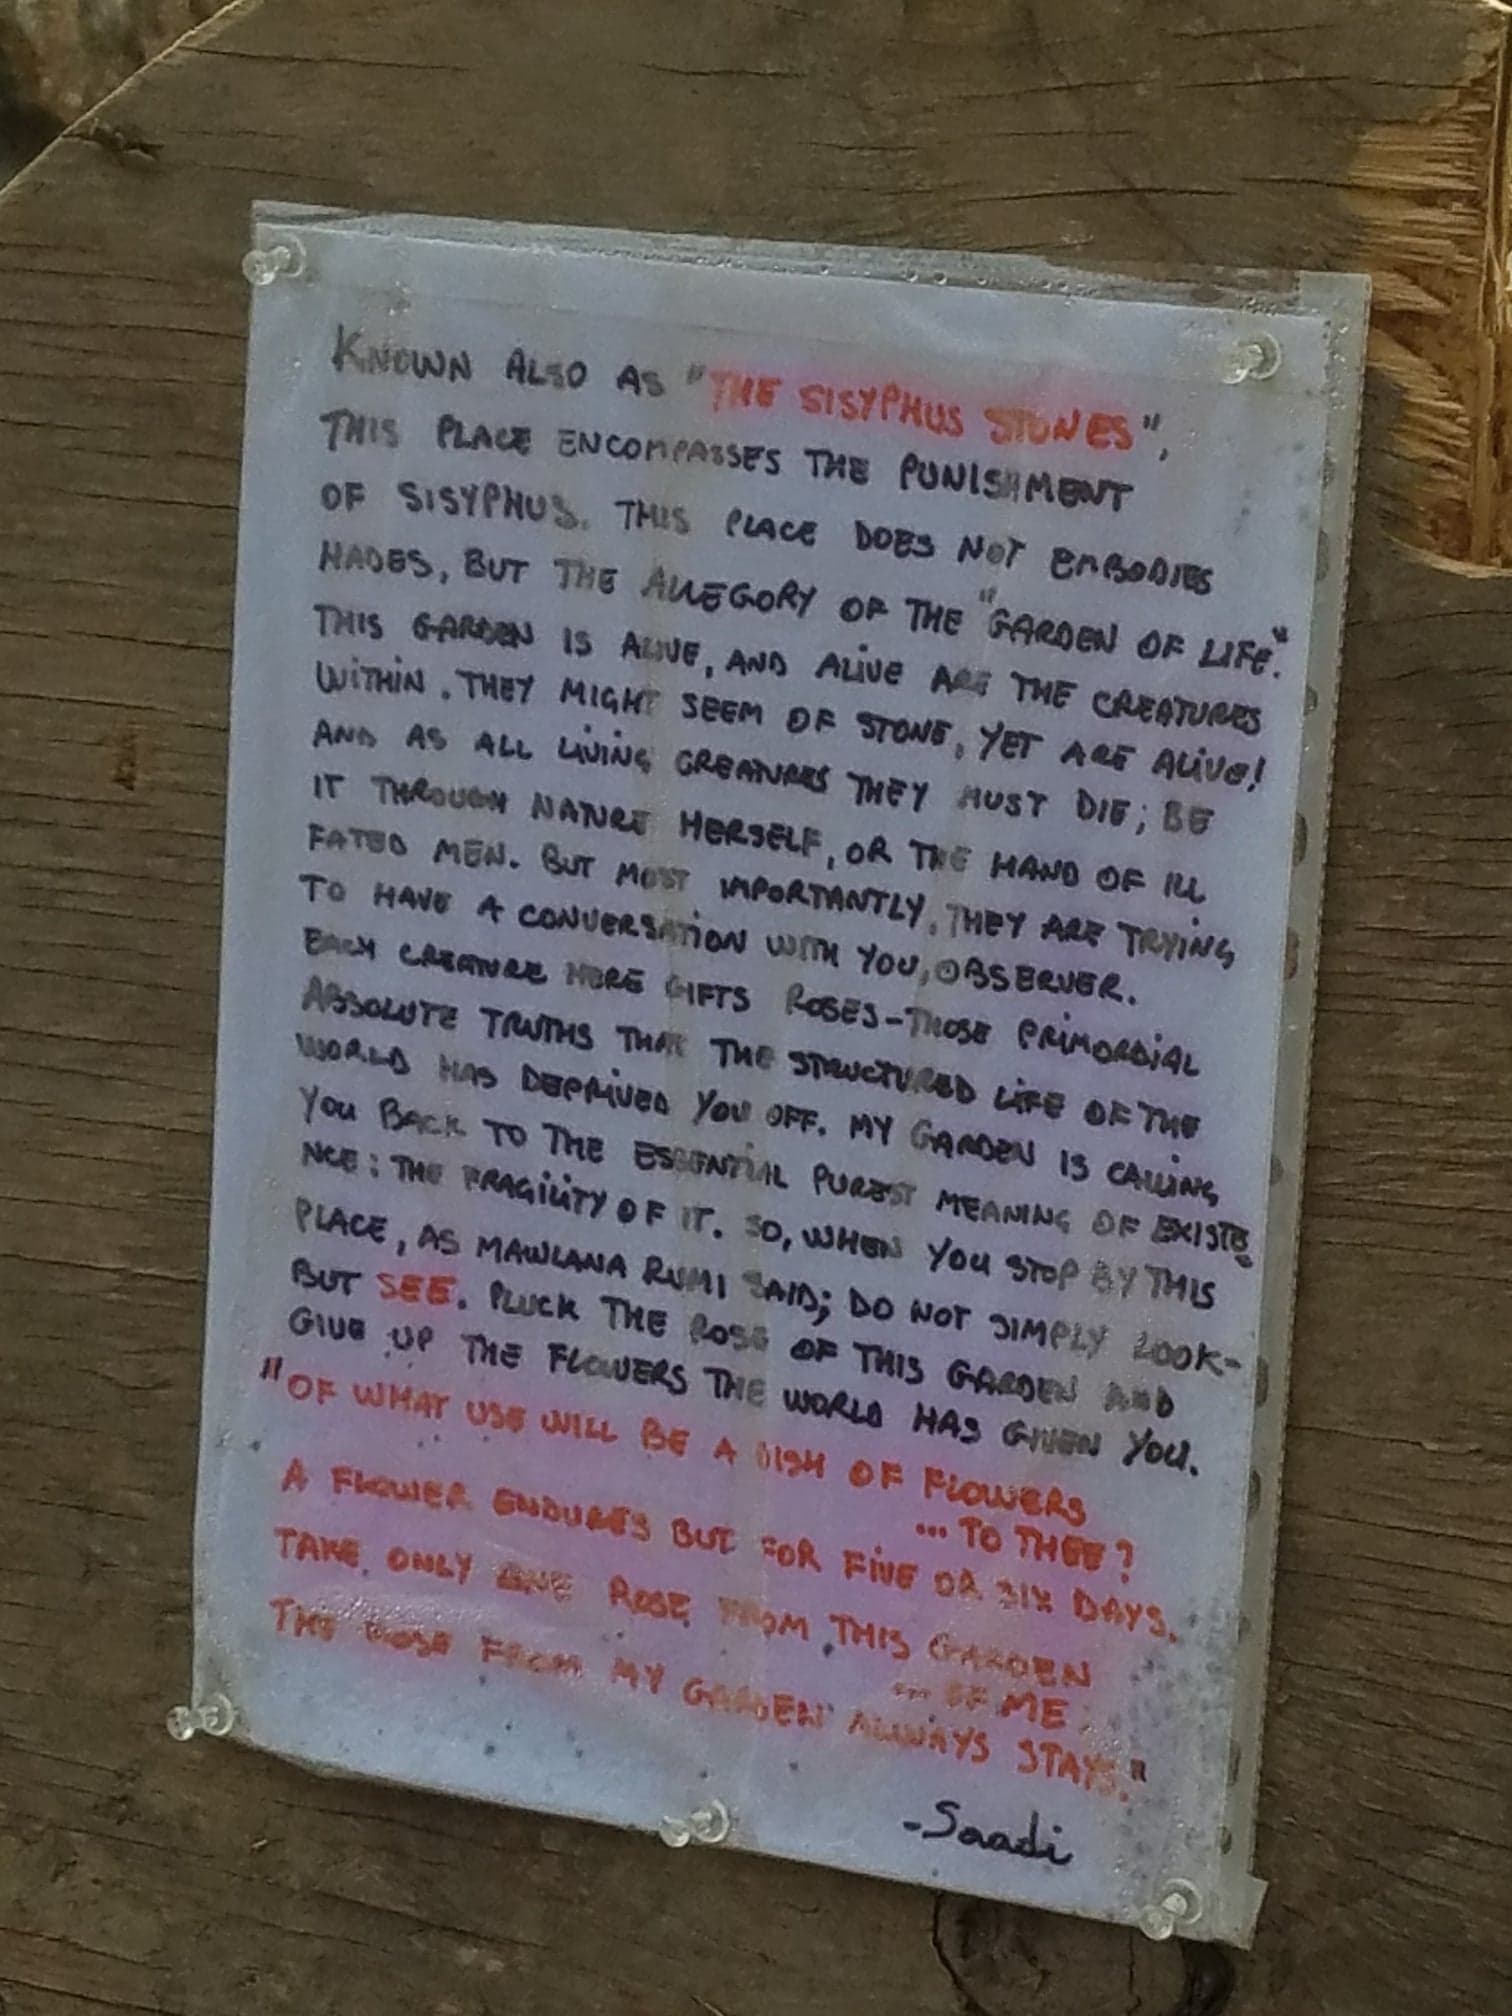 KNOWN ALSO AS "THE SISYPHUS STONES",
THIS PLACE ENCOMPASSES THE PUNISHMENT
OF SISYPHUS. THIS PLACE DOES NOT EMBODIES
HADES, BUT THE ALLEGORY OF THE "GARDEN OF LIFE".
THIS GARDEN IS ALIVE, AND ALIVE ARE THE CREATURES
WITHIN. THEY MIGHT SEEM OF STONE, YET ARE ALIVE!
AND AS ALL LIVING CREATURES THEY MUST DIE; BE
IT THROUGH NATURE HERSELF, OR THE HAND OF ILL
FATED MEN. BUT MOST IMPORTANTLY, THEY ARE TRYING
TO HAVE A CONVERSATION WITH YOU, OBSERVER.
EACH CREATURE HERE GIFTS ROSES-THOSE PRIMORDIAL
ABSOLUTE TRUTHS THAT THE STRUCTURED LIFE OF THE
WORLD HAS DEPRIVED YOU OFF. MY GARDEN IS CALLING
YOU BACK TO THE ESSENTIAL PUREST MEANING OF EXISTE=
NCE: THE FRAGILITY OF IT. SO, WHEN YOU STOP BY THIS
PLACE, AS MAWLANA RUMI SAID; DO NOT SIMPLY LOOK-
BUT SEE. PLUCK THE ROSE OF THIS GARDEN AND
GIVE UP THE FLOWERS THE WORLD HAS GIVEN YOU.
"OF WHAT USE WILL BE A DISH OF FLOWERS
... TO THEE?
A FLOWER ENDURES BUT FOR FIVE OR SIX DAYS.
TAKE ONLY ONE ROSE FROM THIS GARDEN
... OF ME.
THE ROSE FROM MY GARDEN ALWAYS STAYS."
-Saadi